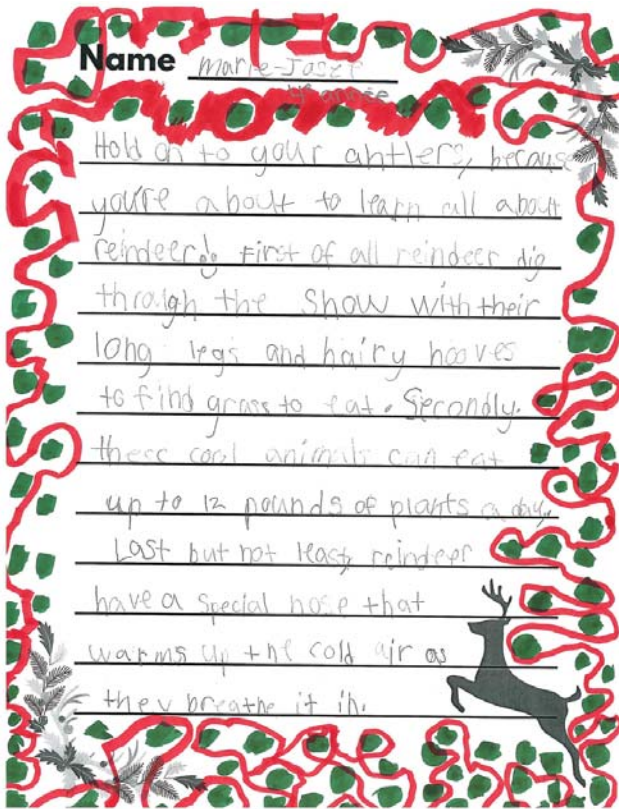 Name marie-Josef
Hold on to your antlers, because
you're about to learn all about
reindeer! First of all reindeer dig
through the snow with their
long legs and hairy hooves
to find grass to eat. Secondly.
these cool animals can eat
up to 12 pounds of plants a day.
Last but not least, reindeer
have a special nose that
warms up the cold air as
they breathe it in.